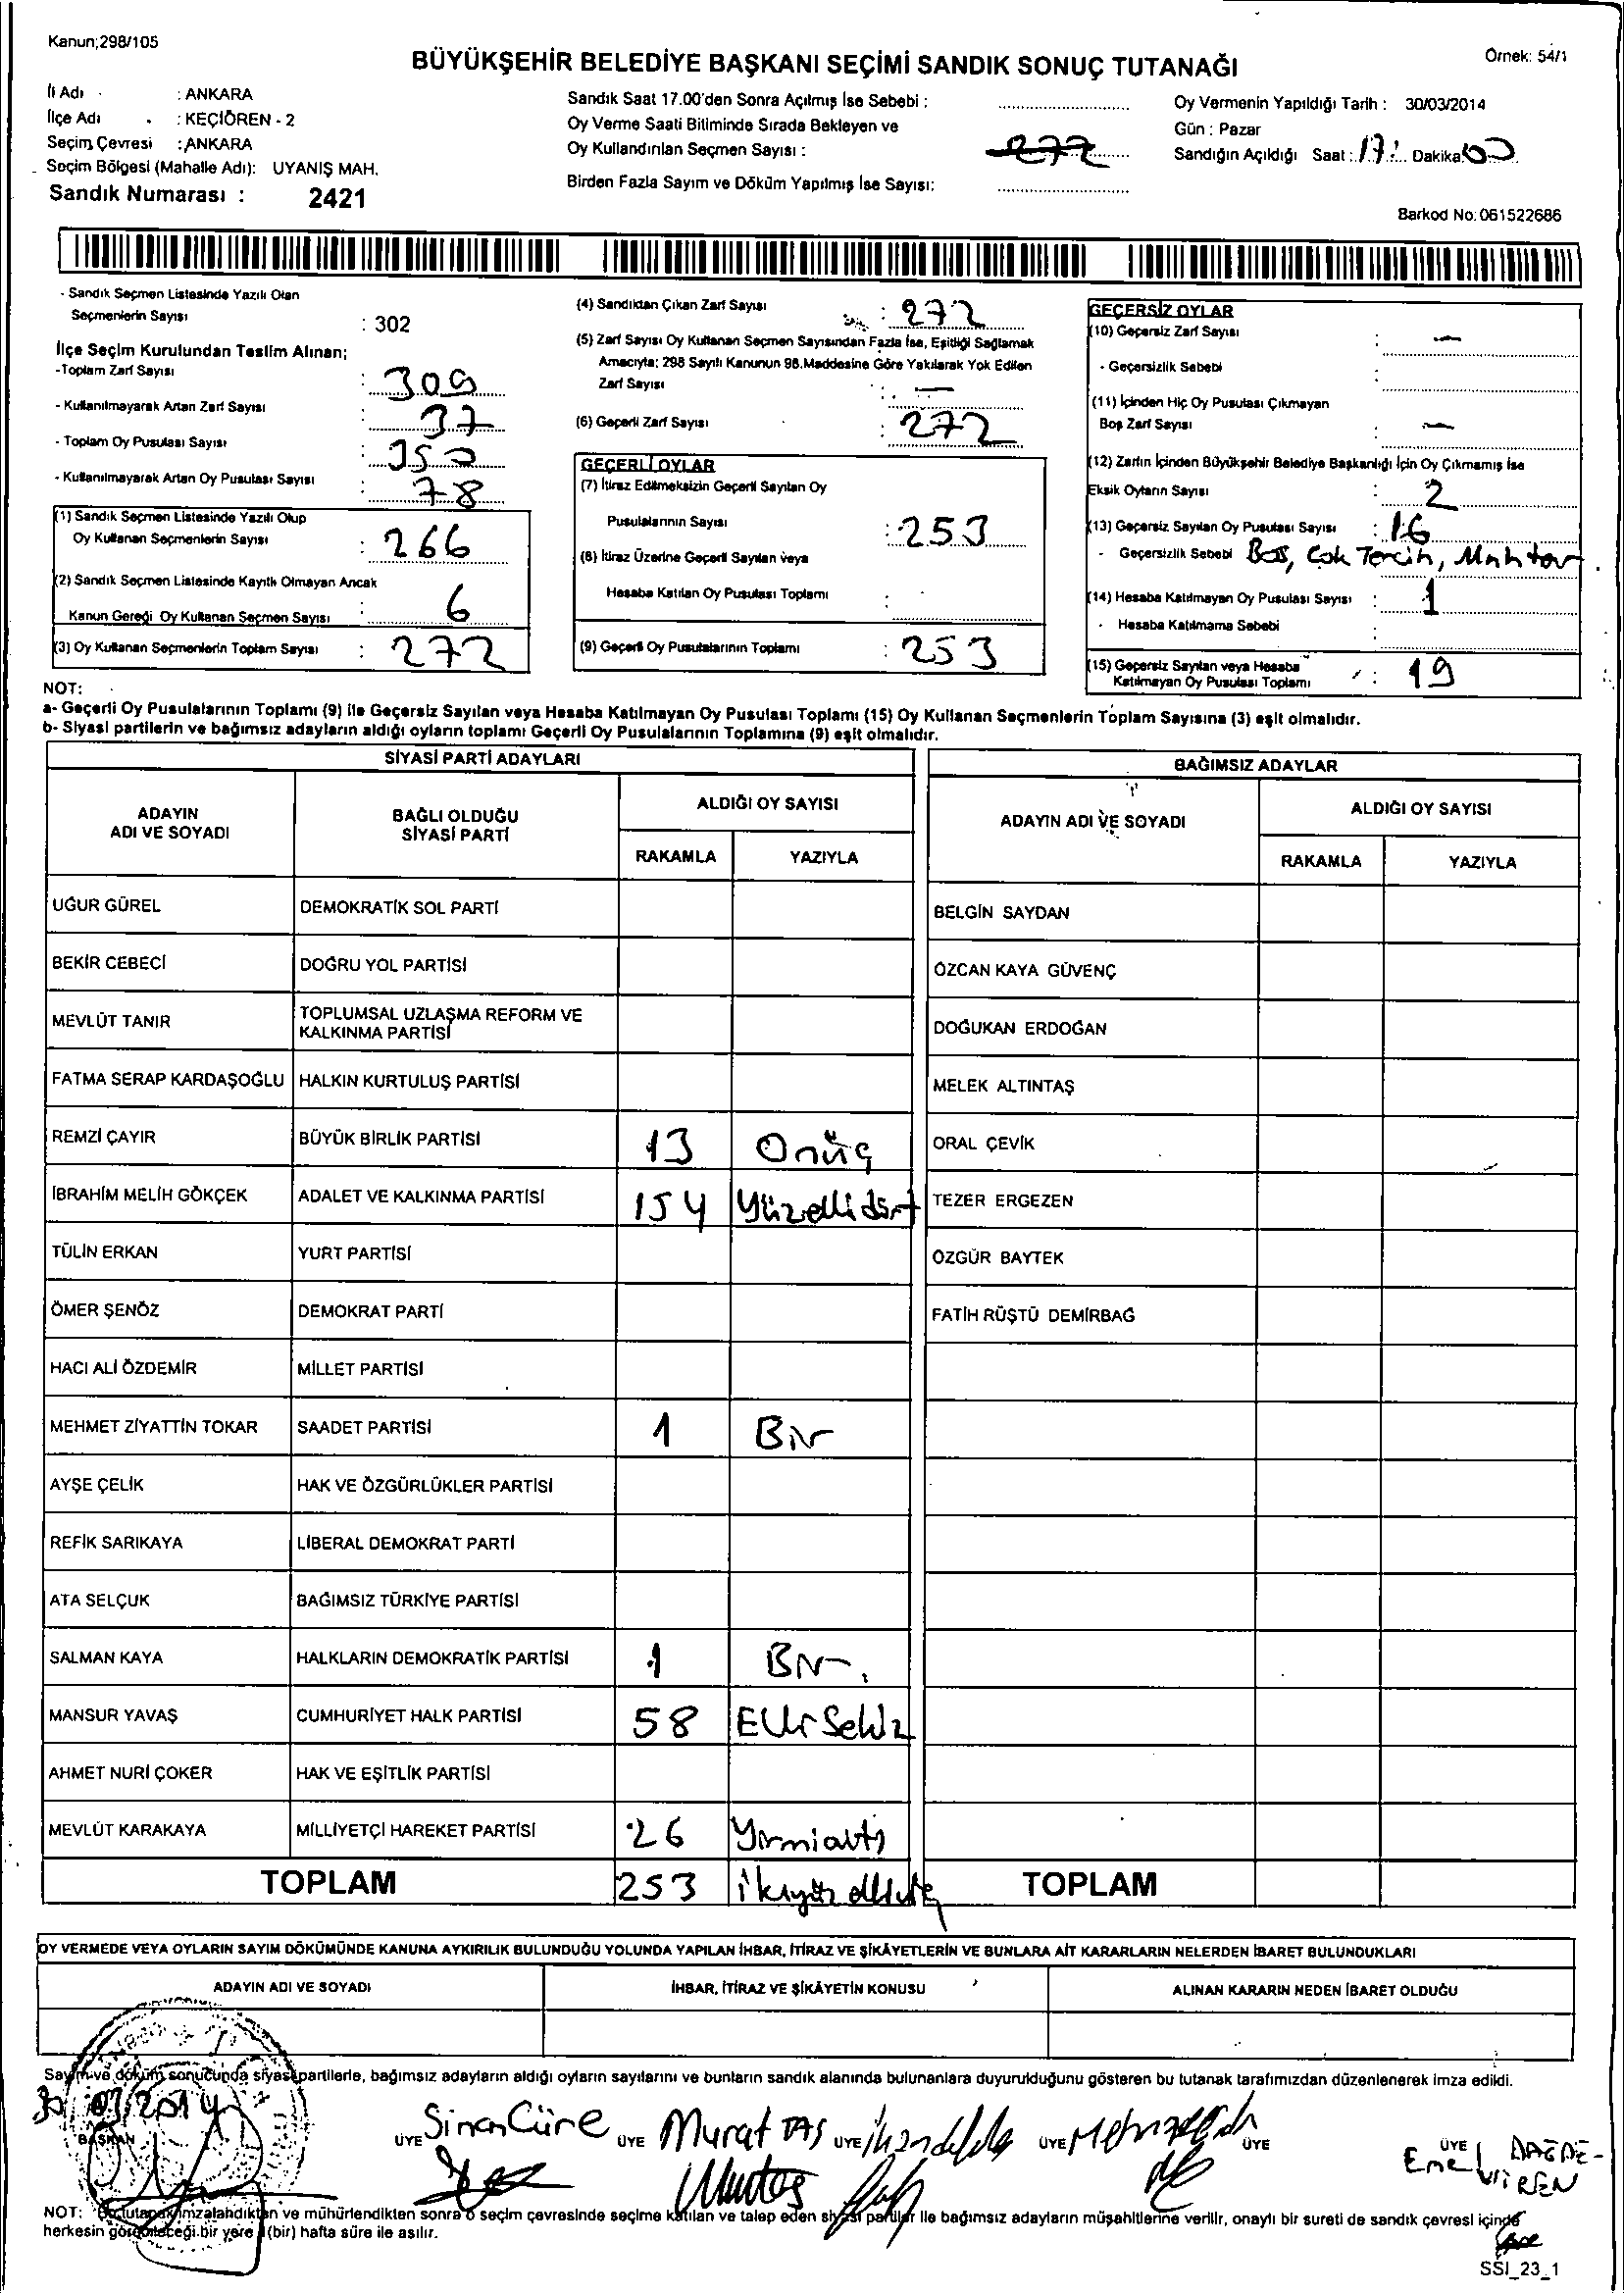 Kanun;298/105
Örnek: 54/1
BÜYÜKŞEHİR BELEDİYE BAŞKANI SEÇİMİ SANDIK SONUÇ TUTANAĞI
İl Adı : ANKARA
İlçe Adı : KEÇİÖREN - 2
Seçim Çevresi : ANKARA
Seçim Bölgesi (Mahalle Adı): UYANIŞ MAH.
Sandık Numarası : 2421
Sandık Saat 17.00'den Sonra Açılmış İse Sebebi :
Oy Verme Saati Bitiminde Sırada Bekleyen ve
Oy Kullandırılan Seçmen Sayısı : 272
Birden Fazla Sayım ve Döküm Yapılmış İse Sayısı:
Oy Vermenin Yapıldığı Tarih : 30/03/2014
Gün : Pazar
Sandığın Açıldığı Saat : 17: Dakika 00
Barkod No: 061522686
- Sandık Seçmen Listesinde Yazılı Olan
Seçmenlerin Sayısı : 302
İlçe Seçim Kurulundan Teslim Alınan;
-Toplam Zarf Sayısı : 309
- Kullanılmayarak Artan Zarf Sayısı : 37
- Toplam Oy Pusulası Sayısı : 350
- Kullanılmayarak Artan Oy Pusulası Sayısı : 78
(1) Sandık Seçmen Listesinde Yazılı Olup
Oy Kullanan Seçmenlerin Sayısı : 266
(2) Sandık Seçmen Listesinde Kayıtlı Olmayan Ancak
Kanun Gereği Oy Kullanan Seçmen Sayısı : 6
(3) Oy Kullanan Seçmenlerin Toplam Sayısı : 272
(4) Sandıktan Çıkan Zarf Sayısı : 272
(5) Zarf Sayısı Oy Kullanan Seçmen Sayısından Fazla İse, Eşitliği Sağlamak
Amacıyla; 298 Sayılı Kanunun 98.Maddesine Göre Yakılarak Yok Edilen
Zarf Sayısı : —
(6) Geçerli Zarf Sayısı : 272
GEÇERLİ OYLAR
(7) İtiraz Edilmeksizin Geçerli Sayılan Oy
Pusulalarının Sayısı : 253
(8) İtiraz Üzerine Geçerli Sayılan veya
Hesaba Katılan Oy Pusulası Toplamı :
(9) Geçerli Oy Pusulalarının Toplamı : 253
GEÇERSİZ OYLAR
(10) Geçersiz Zarf Sayısı : —
- Geçersizlik Sebebi :
(11) İçinden Hiç Oy Pusulası Çıkmayan
Boş Zarf Sayısı : —
(12) Zarfın İçinden Büyükşehir Belediye Başkanlığı İçin Oy Çıkmamış İse
Eksik Oyların Sayısı : 2
(13) Geçersiz Sayılan Oy Pusulası Sayısı : 16
- Geçersizlik Sebebi Boş, Çok Tercih, Muhtar
(14) Hesaba Katılmayan Oy Pusulası Sayısı : 1
- Hesaba Katılmama Sebebi :
(15) Geçersiz Sayılan veya Hesaba
Katılmayan Oy Pusulası Toplamı : 19
NOT:
a- Geçerli Oy Pusulalarının Toplamı (9) ile Geçersiz Sayılan veya Hesaba Katılmayan Oy Pusulası Toplamı (15) Oy Kullanan Seçmenlerin Toplam Sayısına (3) eşit olmalıdır.
b- Siyasi partilerin ve bağımsız adayların aldığı oyların toplamı Geçerli Oy Pusulalarının Toplamına (9) eşit olmalıdır.
SİYASİ PARTİ ADAYLARI
ADAYIN ADI VE SOYADI
BAĞLI OLDUĞU SİYASİ PARTİ
ALDIĞI OY SAYISI
RAKAMLA YAZIYLA
UĞUR GÜREL DEMOKRATİK SOL PARTİ
BEKİR CEBECİ DOĞRU YOL PARTİSİ
MEVLÜT TANIR TOPLUMSAL UZLAŞMA REFORM VE KALKINMA PARTİSİ
FATMA SERAP KARDAŞOĞLU HALKIN KURTULUŞ PARTİSİ
REMZİ ÇAYIR BÜYÜK BİRLİK PARTİSİ 13 Onüç
İBRAHİM MELİH GÖKÇEK ADALET VE KALKINMA PARTİSİ 154 Yüzellidört
TÜLİN ERKAN YURT PARTİSİ
ÖMER ŞENÖZ DEMOKRAT PARTİ
HACI ALİ ÖZDEMİR MİLLET PARTİSİ
MEHMET ZİYATTİN TOKAR SAADET PARTİSİ 1 Bir
AYŞE ÇELİK HAK VE ÖZGÜRLÜKLER PARTİSİ
REFİK SARIKAYA LİBERAL DEMOKRAT PARTİ
ATA SELÇUK BAĞIMSIZ TÜRKİYE PARTİSİ
SALMAN KAYA HALKLARIN DEMOKRATİK PARTİSİ 1 Bir
MANSUR YAVAŞ CUMHURİYET HALK PARTİSİ 58 Elli Sekiz
AHMET NURİ ÇOKER HAK VE EŞİTLİK PARTİSİ
MEVLÜT KARAKAYA MİLLİYETÇİ HAREKET PARTİSİ 26 Yirmialtı
TOPLAM 253 ikiyüz elliüç
BAĞIMSIZ ADAYLAR
ADAYIN ADI VE SOYADI
ALDIĞI OY SAYISI
RAKAMLA YAZIYLA
BELGİN SAYDAN
ÖZCAN KAYA GÜVENÇ
DOĞUKAN ERDOĞAN
MELEK ALTINTAŞ
ORAL ÇEVİK
TEZER ERGEZEN
ÖZGÜR BAYTEK
FATİH RÜŞTÜ DEMİRBAĞ
TOPLAM
OY VERMEDE VEYA OYLARIN SAYIM DÖKÜMÜNDE KANUNA AYKIRILIK BULUNDUĞU YOLUNDA YAPILAN İHBAR, İTİRAZ VE ŞİKÂYETLERİN VE BUNLARA AİT KARARLARIN NELERDEN İBARET BULUNDUKLARI
ADAYIN ADI VE SOYADI İHBAR, İTİRAZ VE ŞİKÂYETİN KONUSU ALINAN KARARIN NEDEN İBARET OLDUĞU
Sayım ve döküm sonucunda siyasi partilerle, bağımsız adayların aldığı oyların sayılarını ve bunların sandık alanında bulunanlara duyurulduğunu gösteren bu tutanak tarafımızdan düzenlenerek imza edildi.
30/03/2014
BAŞKAN ÜYE Sinan Cüre ÜYE Murat TAŞ ÜYE ÜYE ÜYE ÜYE Emel DAĞDE-
VİREN
NOT: Bu tutanak imzalandıktan ve mühürlendikten sonra o seçim çevresinde seçime katılan ve talep eden siyasi partiler ile bağımsız adayların müşahitlerine verilir, onaylı bir sureti de sandık çevresi içinde
herkesin görebileceği bir yere 1 (bir) hafta süre ile asılır.
SSİ_23_1